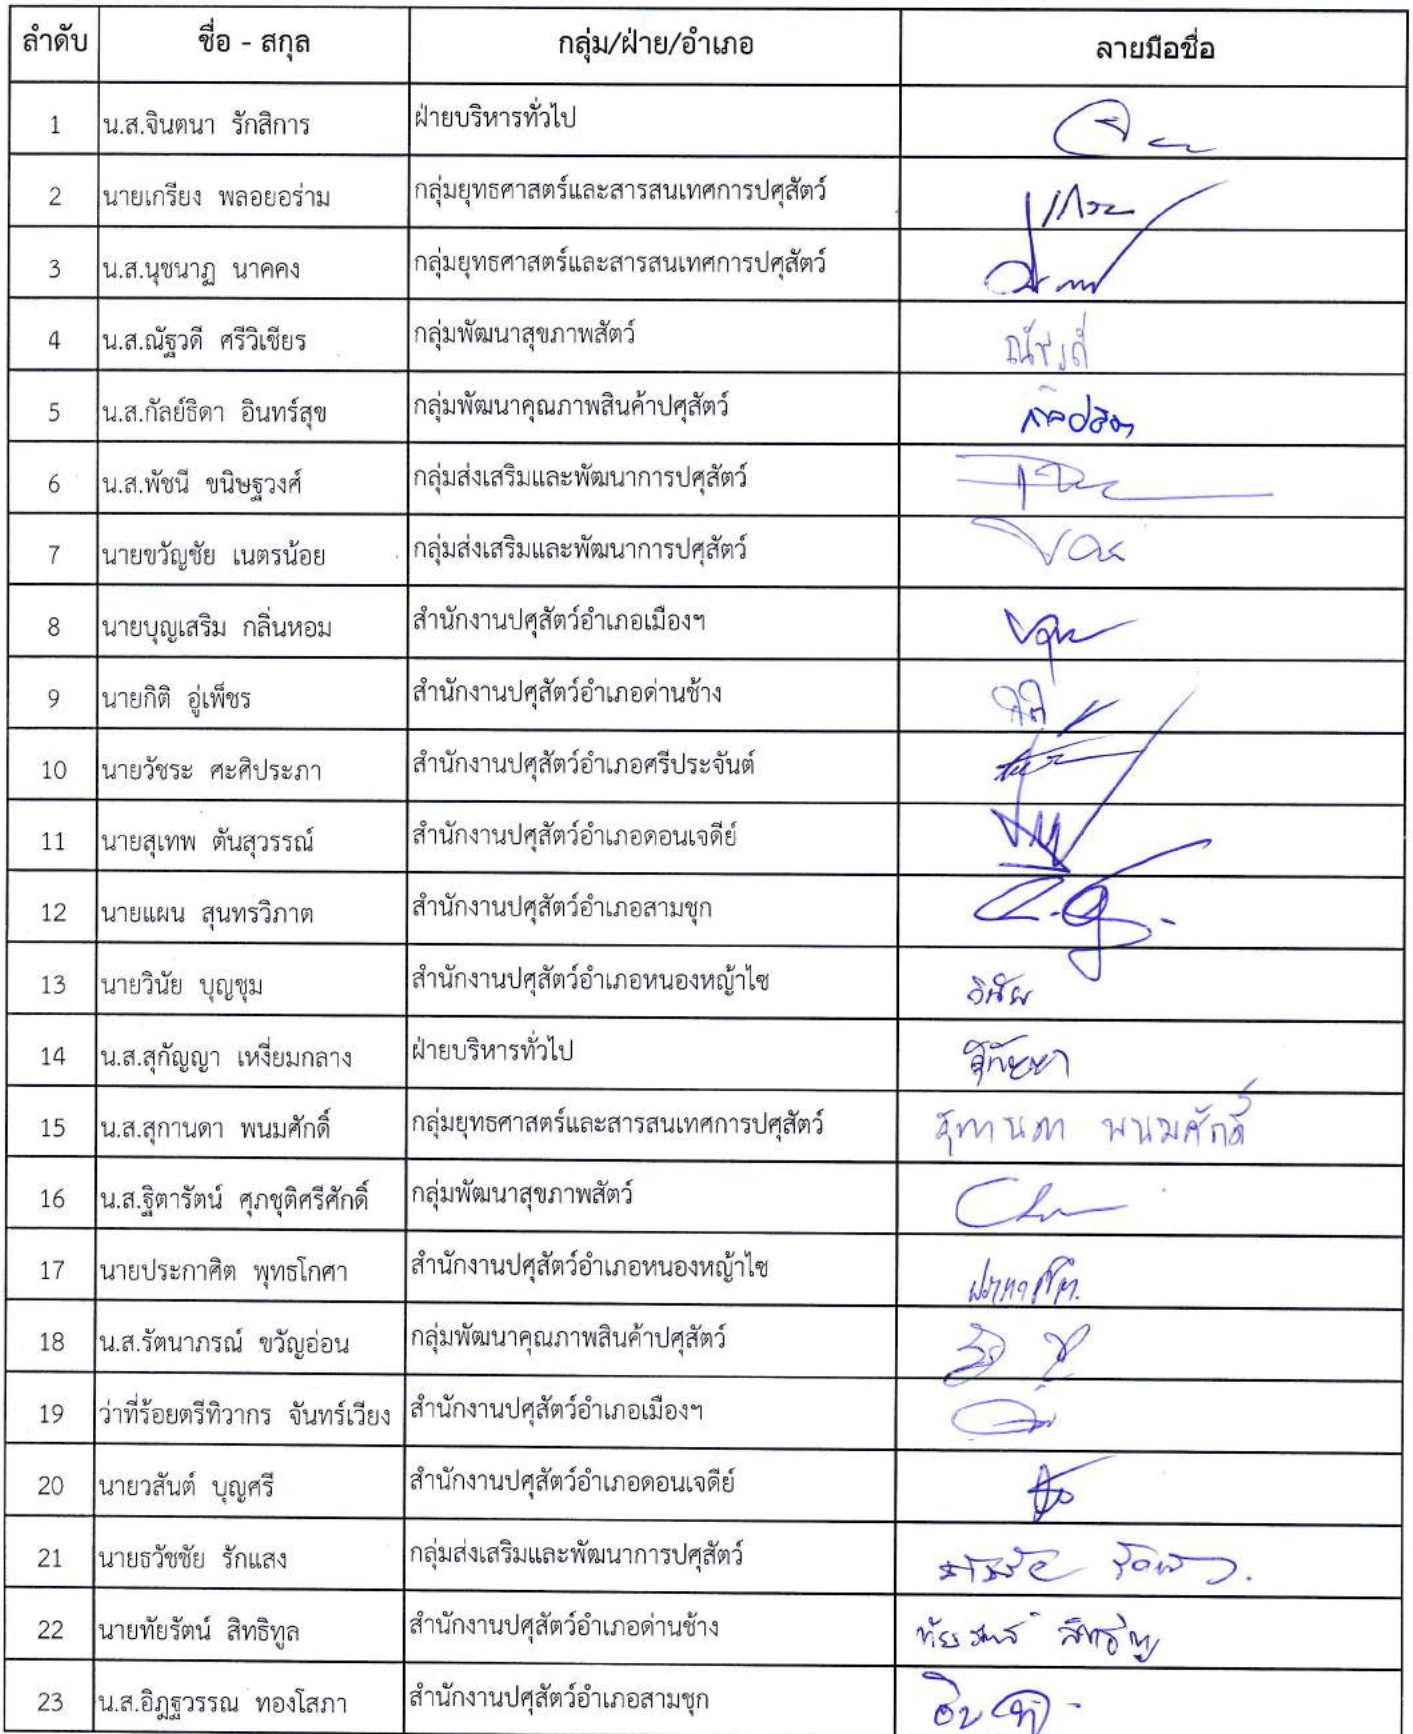 ลำดับ ชื่อ - สกุล กลุ่ม/ฝ่าย/อำเภอ ลายมือชื่อ
1 น.ส.จินตนา รักสิการ ฝ่ายบริหารทั่วไป
2 นายเกรียง พลอยอร่าม กลุ่มยุทธศาสตร์และสารสนเทศการปศุสัตว์
3 น.ส.นุชนาฏ นาคคง กลุ่มยุทธศาสตร์และสารสนเทศการปศุสัตว์
4 น.ส.ณัฐวดี ศรีวิเชียร กลุ่มพัฒนาสุขภาพสัตว์
5 น.ส.กัลย์ธิดา อินทร์สุข กลุ่มพัฒนาคุณภาพสินค้าปศุสัตว์
6 น.ส.พัชนี ขนิษฐวงศ์ กลุ่มส่งเสริมและพัฒนาการปศุสัตว์
7 นายขวัญชัย เนตรน้อย กลุ่มส่งเสริมและพัฒนาการปศุสัตว์
8 นายบุญเสริม กลิ่นหอม สำนักงานปศุสัตว์อำเภอเมืองฯ
9 นายกิติ อู่เพ็ชร สำนักงานปศุสัตว์อำเภอด่านช้าง กิติ
10 นายวัชระ ศะศิประภา สำนักงานปศุสัตว์อำเภอศรีประจันต์
11 นายสุเทพ ตันสุวรรณ์ สำนักงานปศุสัตว์อำเภอดอนเจดีย์
12 นายแผน สุนทรวิภาต สำนักงานปศุสัตว์อำเภอสามชุก
13 นายวินัย บุญชุม สำนักงานปศุสัตว์อำเภอหนองหญ้าไซ วินัย
14 น.ส.สุกัญญา เหงี่ยมกลาง ฝ่ายบริหารทั่วไป สุกัญญา
15 น.ส.สุกานดา พนมศักดิ์ กลุ่มยุทธศาสตร์และสารสนเทศการปศุสัตว์ สุกานดา พนมศักดิ์
16 น.ส.ฐิตารัตน์ ศุภชุติศรีศักดิ์ กลุ่มพัฒนาสุขภาพสัตว์
17 นายประกาศิต พุทธโกศา สำนักงานปศุสัตว์อำเภอหนองหญ้าไซ ประกาศิต
18 น.ส.รัตนาภรณ์ ขวัญอ่อน กลุ่มพัฒนาคุณภาพสินค้าปศุสัตว์
19 ว่าที่ร้อยตรีทิวากร จันทร์เวียง สำนักงานปศุสัตว์อำเภอเมืองฯ
20 นายวสันต์ บุญศรี สำนักงานปศุสัตว์อำเภอดอนเจดีย์
21 นายธวัชชัย รักแสง กลุ่มส่งเสริมและพัฒนาการปศุสัตว์
22 นายทัยรัตน์ สิทธิทูล สำนักงานปศุสัตว์อำเภอด่านช้าง ทัยรัตน์ สิทธิทูล
23 น.ส.อิฏฐวรรณ ทองโสภา สำนักงานปศุสัตว์อำเภอสามชุก